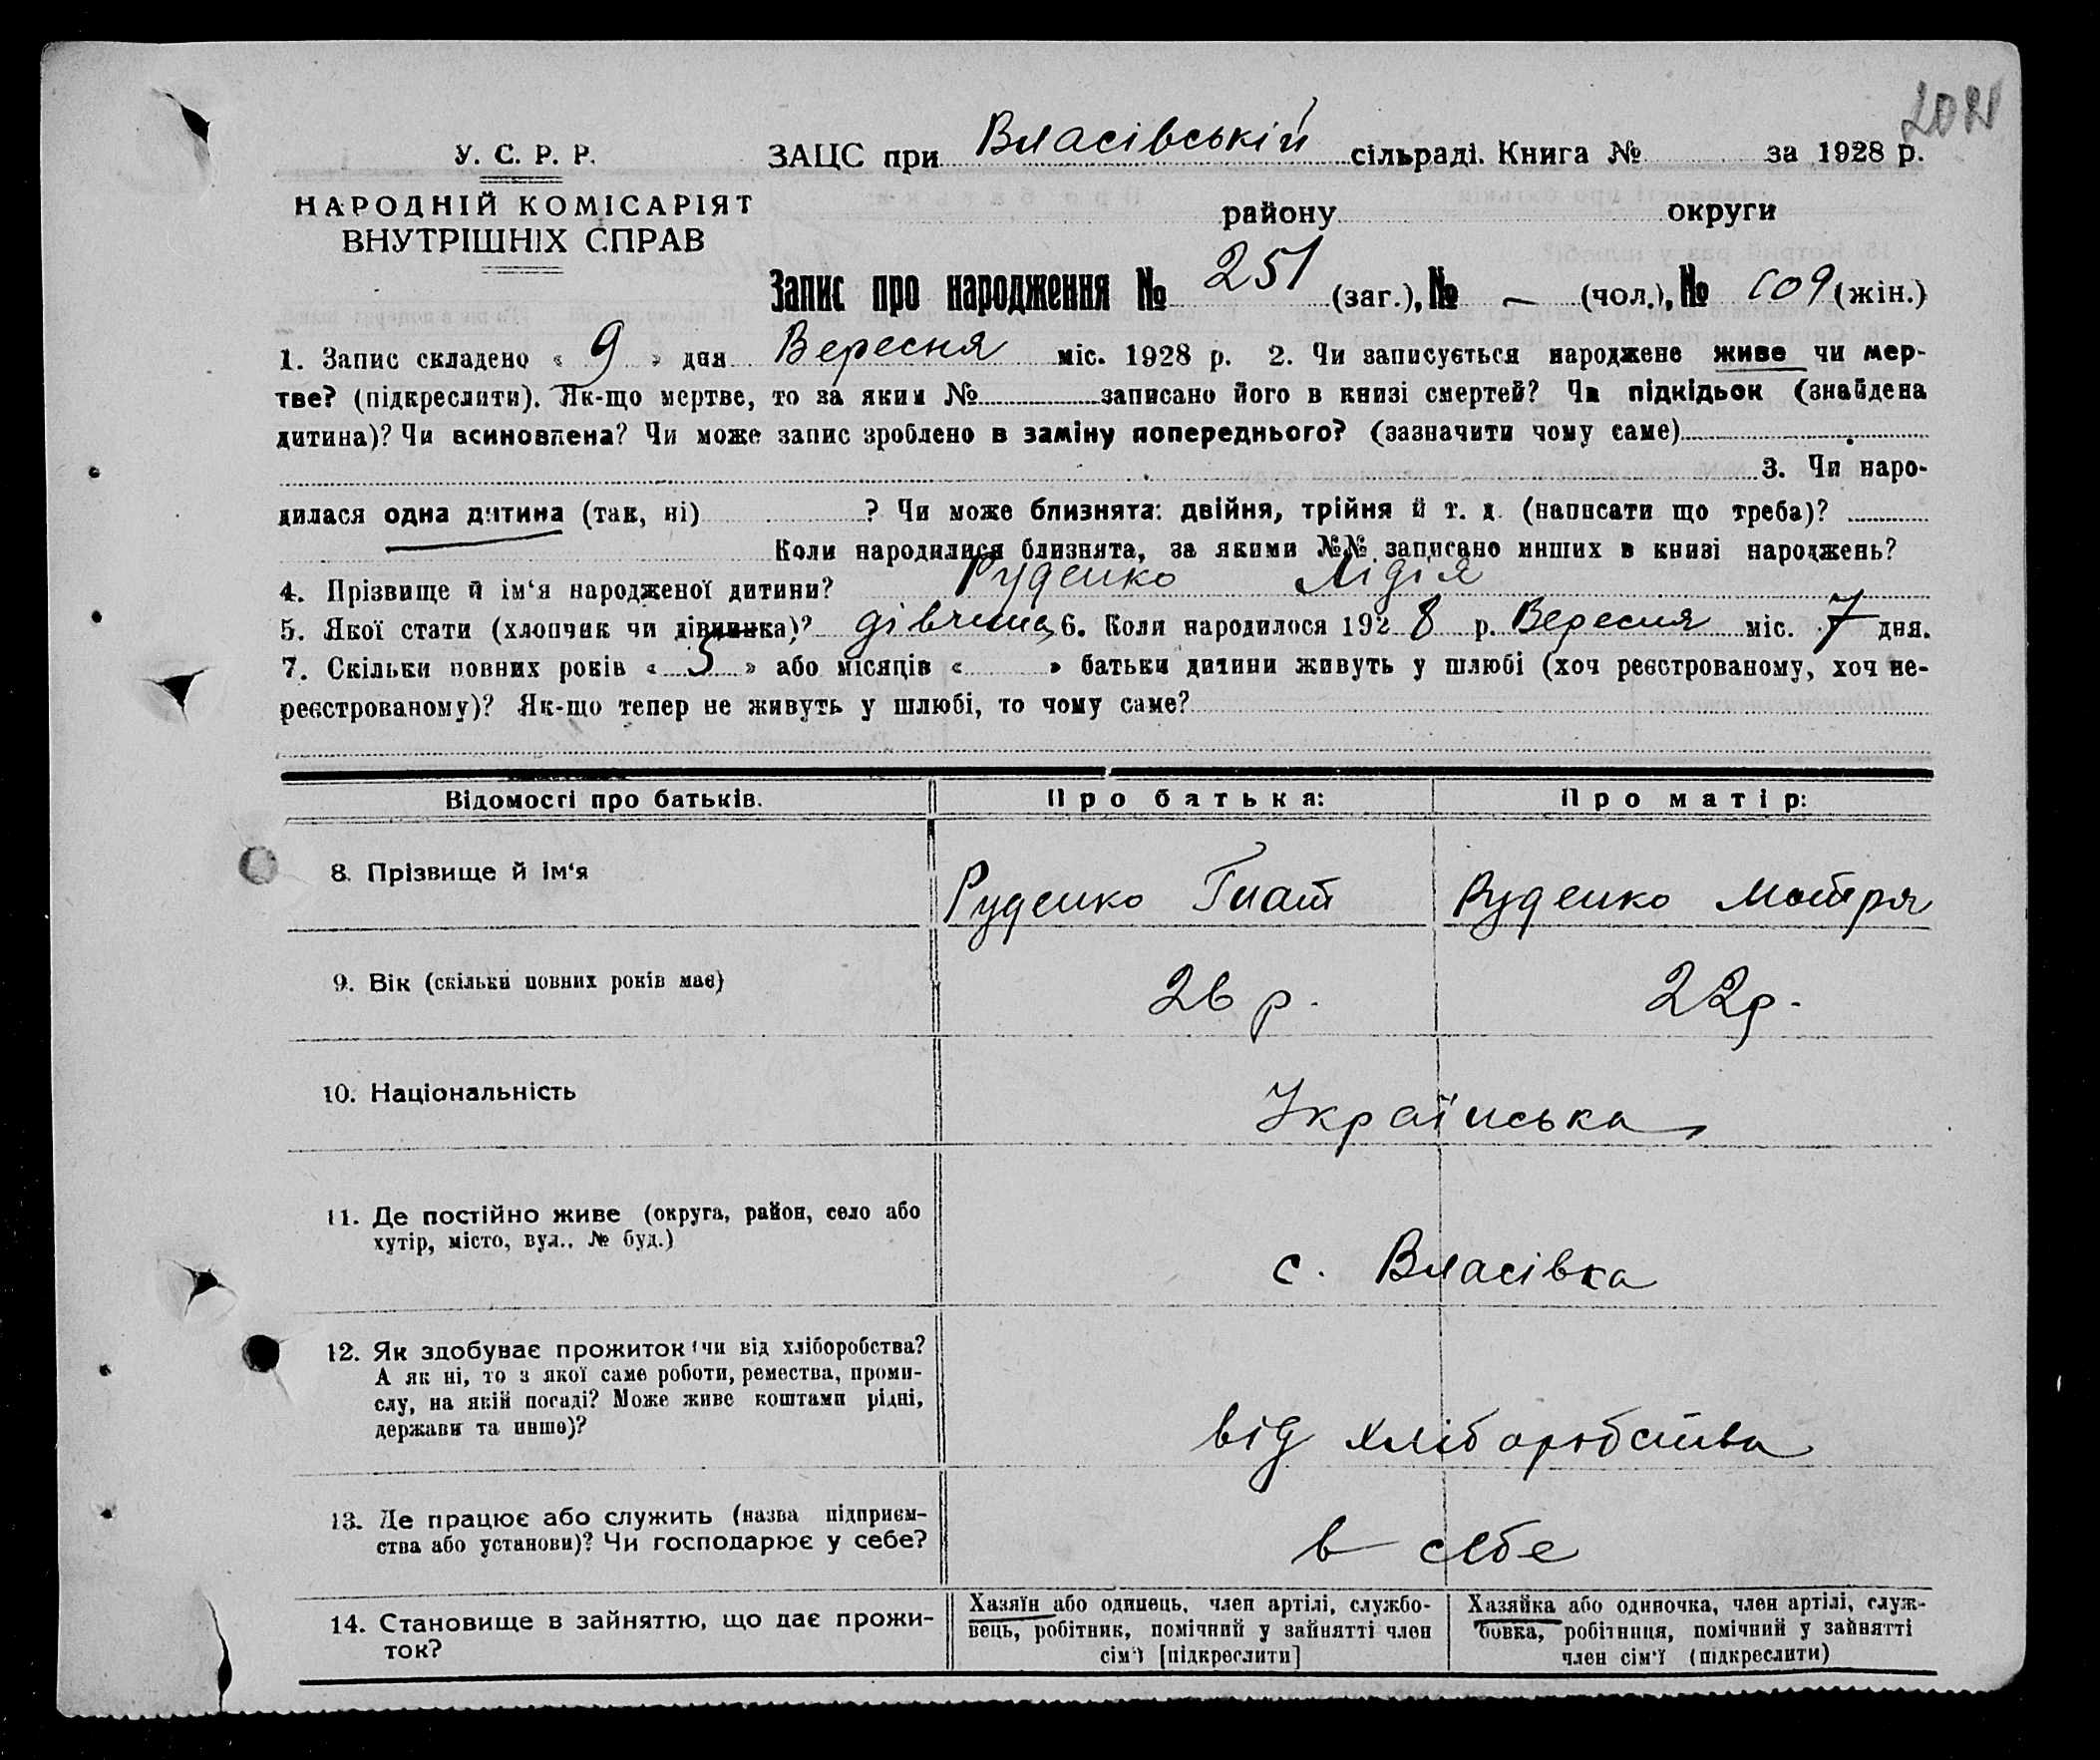 У. С. Р. Р.
НАРОДНІЙ КОМІСАРІЯТ
ВНУТРІШНІХ СПРАВ
ЗАЦС при Власівській сільраді. Книга № за 1928 р.
району округи
Запис про народження № 251 (заг.), № — (чол.), № 109 (жін.)
1. Запис складено « 9 » дня Вересня міс. 1928 р. 2. Чи записується народжене живе чи мер-
тве? (підкреслити). Як-що мертве, то за яким № записано його в книзі смертей? Чи підкідьок (знайдена
дитина)? Чи всиновлена? Чи може запис зроблено в заміну попереднього? (зазначити чому саме)
3. Чи наро-
дилася одна дитина (так, ні) ? Чи може близнята: двійня, трійня й т. д. (написати що треба)?
Коли народилися близнята, за якими №№ записано инших в книзі народжень?
4. Прізвище й ім‘я народженої дитини? Руденко Лідія
5. Якої стати (хлопчик чи дівчинка)? дівчина 6. Коли народилося 1928 р. Вересня міс. 7 дня.
7. Скільки повних років « 5 » або місяців « » батьки дитини живуть у шлюбі (хоч реєстрованому, хоч не-
реєстрованому)? Як-що тепер не живуть у шлюбі, то чому саме?
Відомості про батьків. Про батька: Про матір:
8. Прізвище й ім‘я Руденко Гнат Руденко Мотря
9. Вік (скільки повних років має) 26 р. 22 р.
10. Національність Українська
11. Де постійно живе (округа, район, село або
хутір, місто, вул., № буд.)
с. Власівка
12. Як здобуває прожиток (чи від хліборобства?
А як ні, то з якої саме роботи, ремества, проми-
слу, на якій посаді? Може живе коштами рідні,
держави та инше)?
від хліборобства
13. Де працює або служить (назва підприєм-
ства або установи)? Чи господарює у себе?
в себе
14. Становище в зайняттю, що дає прожи-
ток?
Хазяїн або одинець, член артілі, службо-
вець, робітник, помічний у зайнятті член
сім‘ї [підкреслити]
Хазяйка або одиночка, член артілі, служ-
бовка, робітниця, помічний у зайнятті
член сім‘ї (підкреслити)